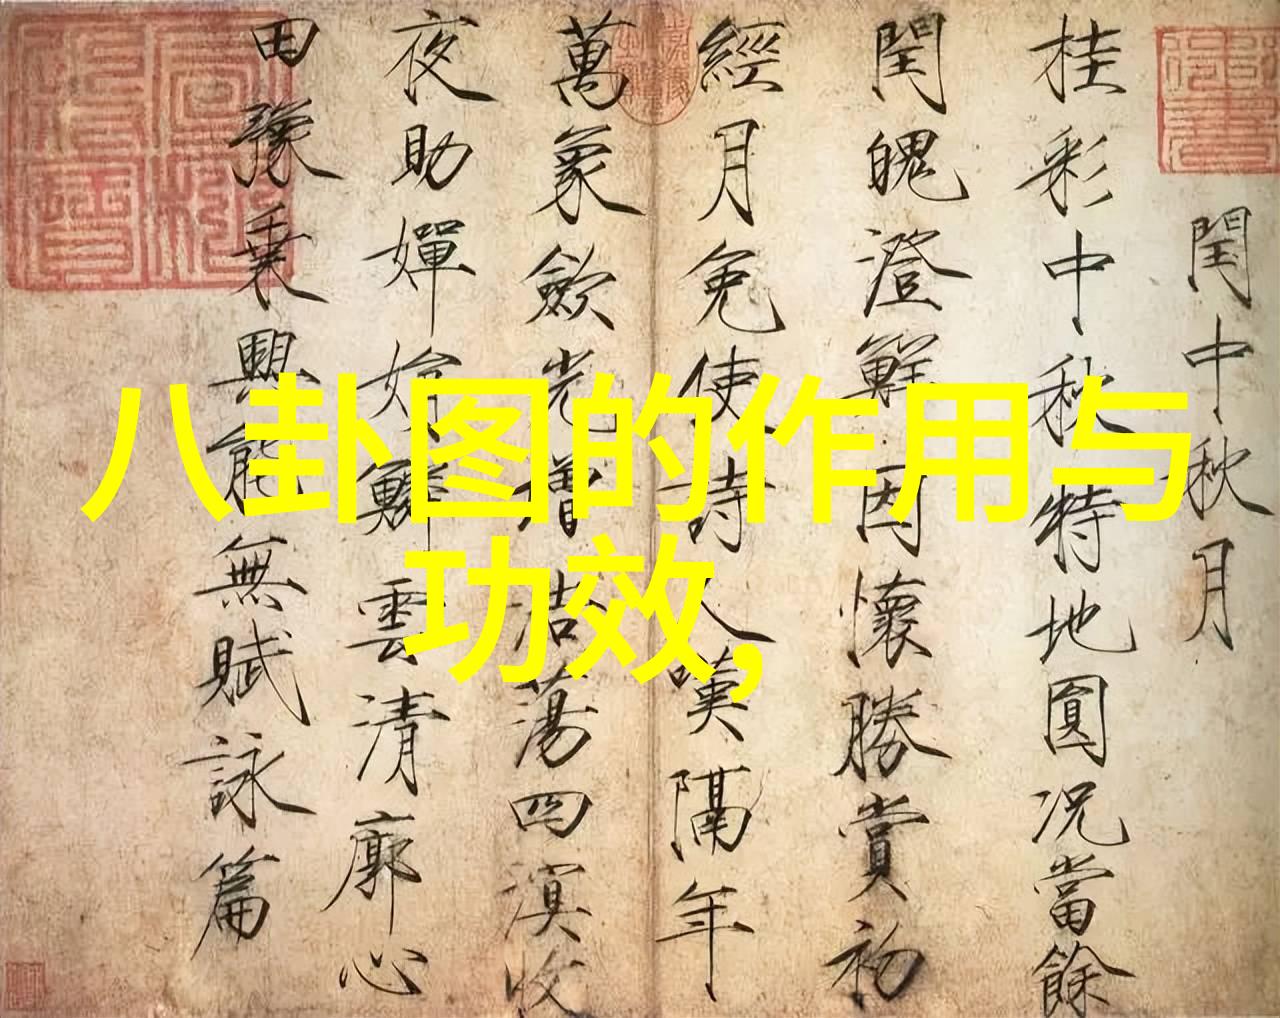 閏中秋月
桂彩中秋特地圓況當餘
閏魄澄鮮因懷勝賞初
經月免使詩人嘆隔年
萬象歛光增浩蕩四溟收
夜助嬋娟鱗雲清廓心
田豫乗興能無賦詠篇
八卦图的作用与
功效,